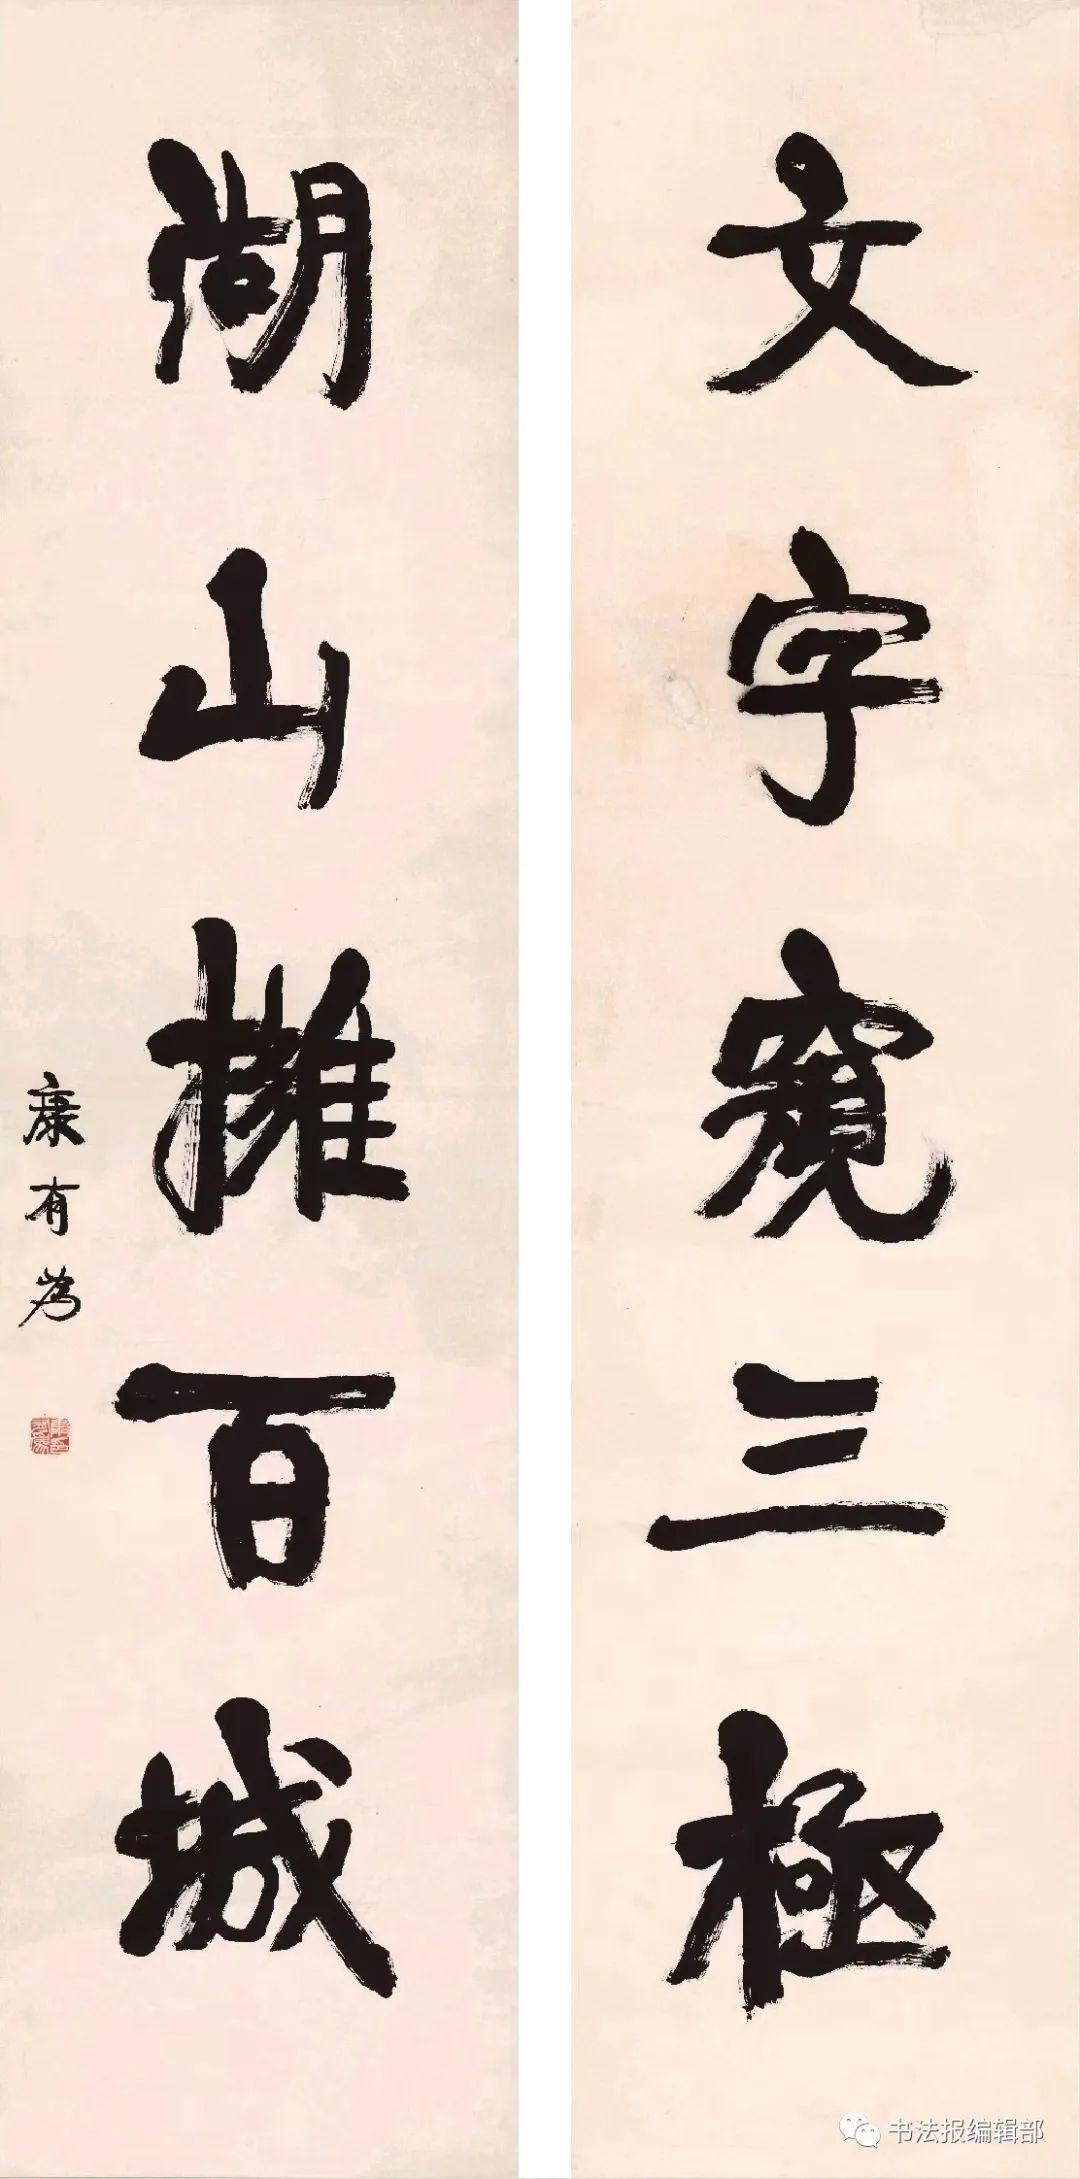 文字窺三極
湖山擁百城
康有為
书法报编辑部